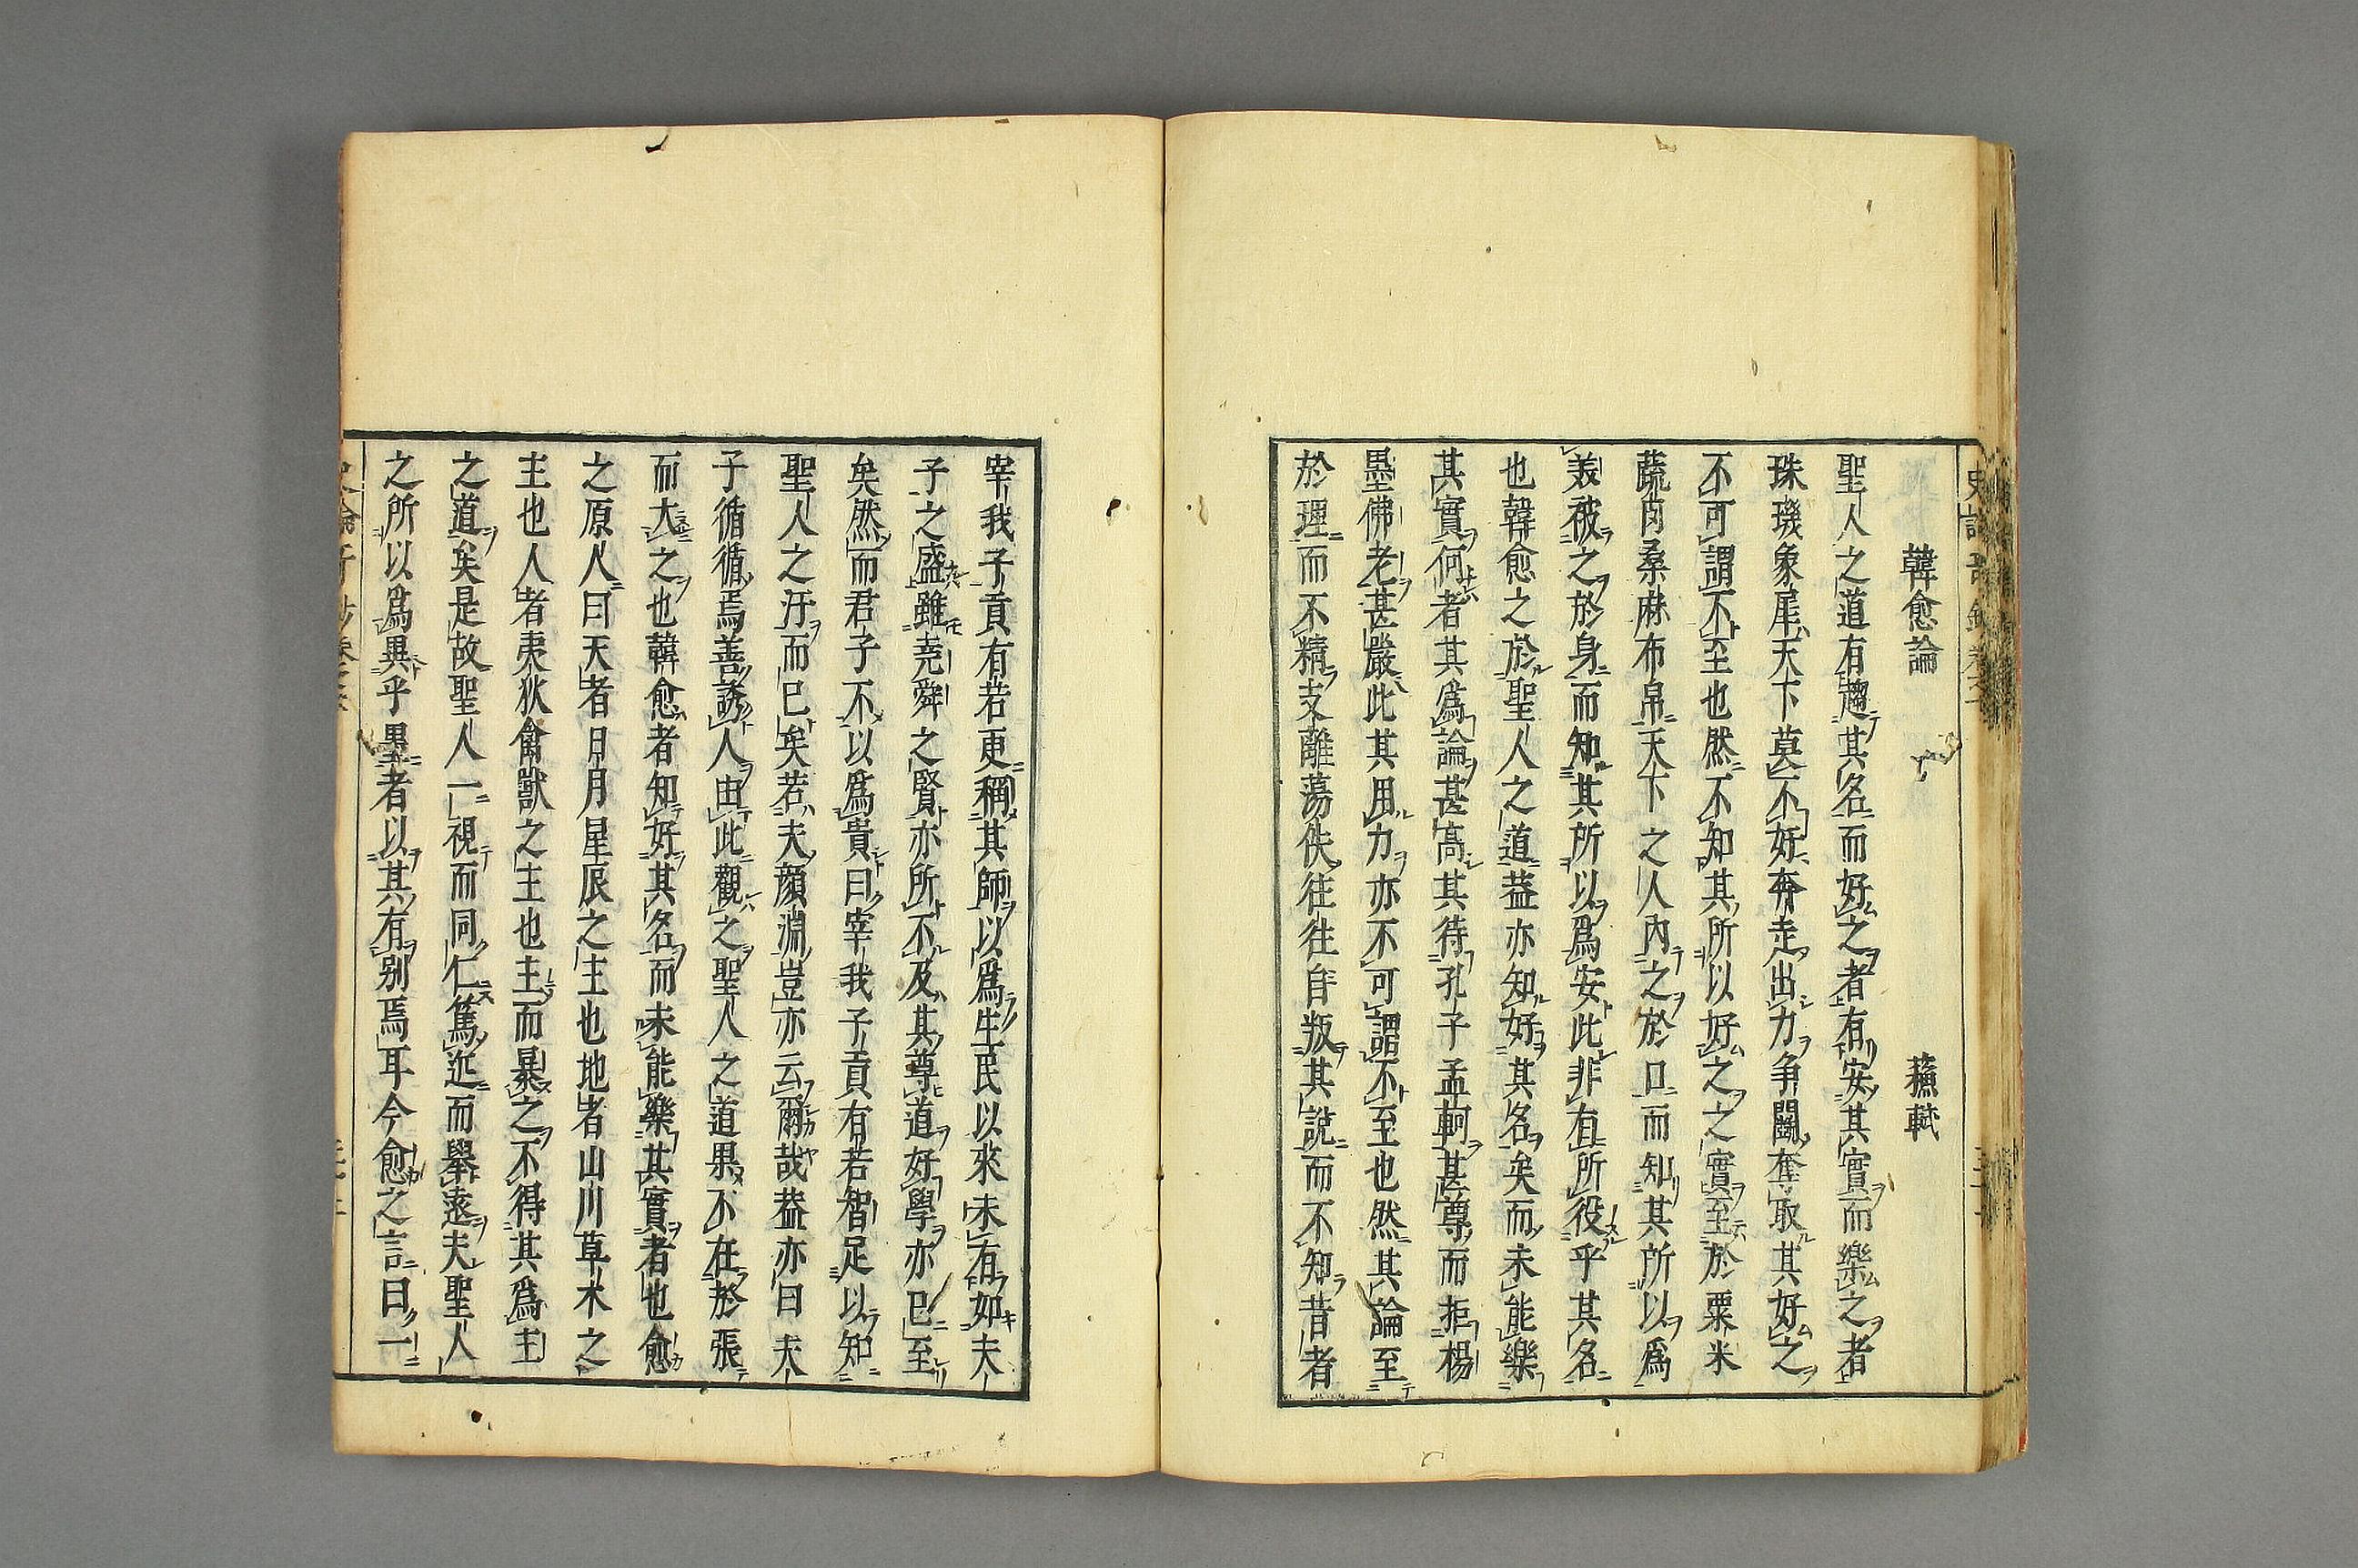 韓愈論 蘓軾
聖人之道有趨其名而好之者有安其實而樂之者
珠璣象犀天下莫不好奔走出力爭鬪奪取其好之
不可謂不至也然不知其所以好之之實至於粟米
蔬肉桑麻布帛天下之人內之於口而知其所以爲
美被之於身而知其所以爲安此非有所役乎其名
也韓愈之於聖人之道益亦知好其名矣而未能樂
其實何者其爲論甚高其待孔子孟軻甚尊而拒楊
墨佛老甚嚴此其用力亦不可謂不至也然其論至
於理而不精支離蕩佚往往自叛其說而不知昔者
宰我子貢有若更稱其師以爲生民以來未有如夫
子之盛雖堯舜之賢亦所不及其尊道好學亦已至
矣然而君子不以爲貴曰宰我子貢有若智足以知
聖人之汙而已矣若夫顔淵豈亦云爾哉益亦曰夫
子循循焉善誘人由此觀之聖人之道果不在於張
而大之也韓愈者知好其名而未能樂其實者也愈
之原人曰天者日月星辰之主也地者山川草木之
主也人者夷狄禽獸之主也主而暴之不得其爲主
之道矣是故聖人一視而同仁篤近而舉遠夫聖人
之所以爲異乎墨者以其有别焉耳今愈之言曰一